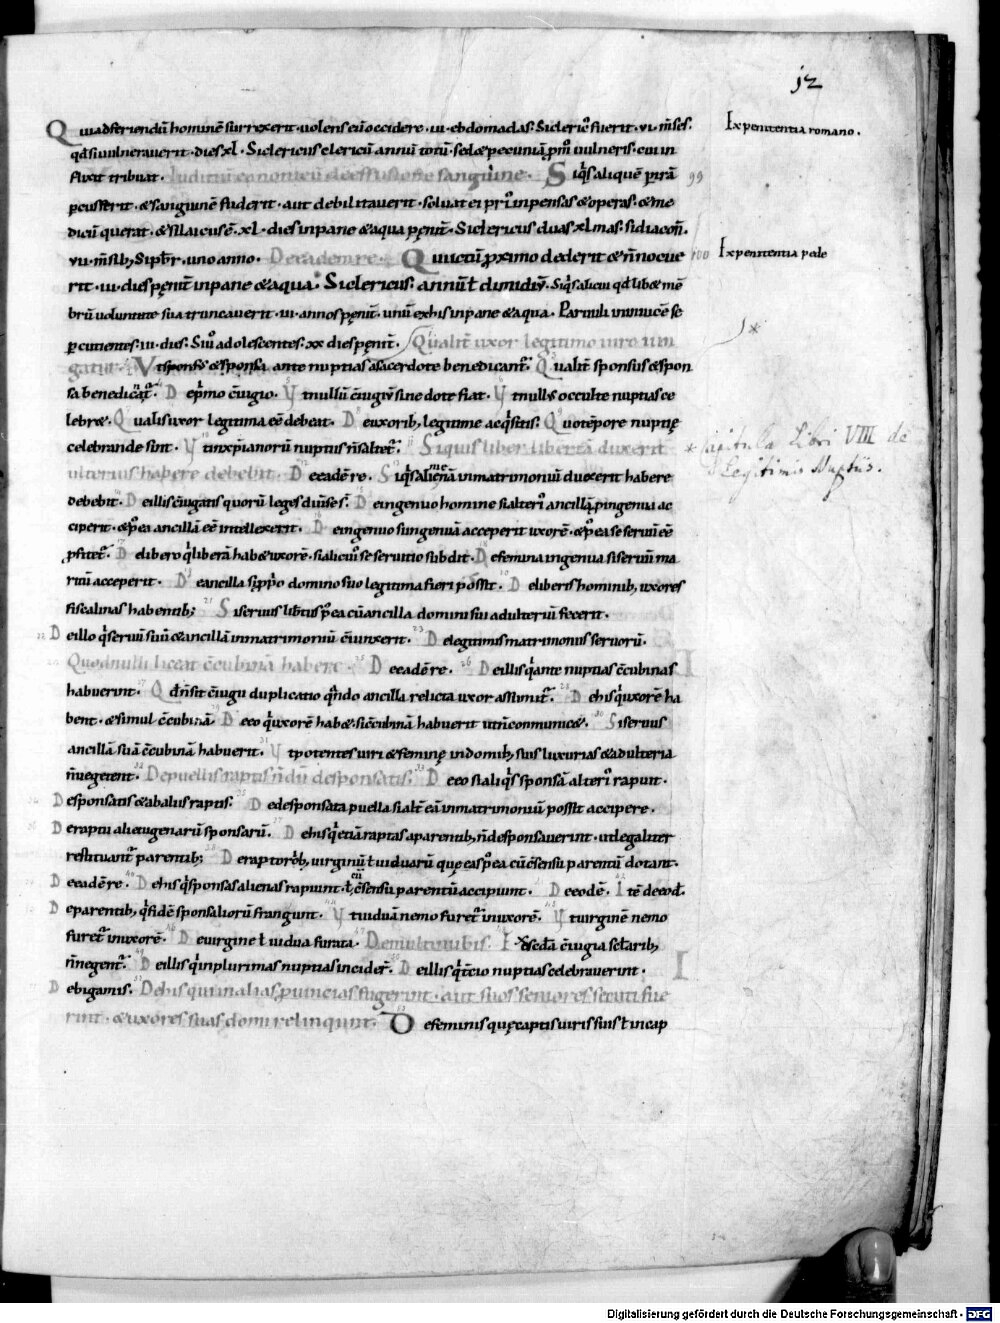 12
Qui ad feriendū hominē surrexerit · uolens eū occidere · iii · ebdomadas · Si clericꝰ fuerit · vi · m̄ses ·
Ex penitentia romano .
qđ si uulnerauerit · dies xl · Si clericus clericū annū totū · sed & pecuniā ꝓ m̊ uulneris · cui in
flixit tribuat · Iudiciū canonicū de effusione sanguine · Siq̇s aliquē ꝑ irā
99
ꝑcusserit · & sanguinē fuderit · aut debilitauerit · soluat ei prı̊ inpensas & operas · & me
dicū querat · & si laicus ē · xl · dies in pane & aqua pęnit̄ · Si clericus duas xlmas · si diacoñ ·
vii · m̄sib; Si pb̄r · uno anno · De eadem re · Qui ictū ꝓximo dederit & n̄ nocue
100
Ex penitentia pele
rit · iii · dies pęnit̄ in pane & aqua · Si clericus · annū ł dimidiū · Siq̇s alicui qđlib& mē
brū uoluntate sua truncauerit · iii · annos pęnit̄ · unū ex his in pane & aqua · Paruuli inuicē se
ꝑcutientes · iii · dies · Si ů adolescentes · xx dies pęnit̄ · Qualit̄ uxor legitimo iure iun
gatur · Vt sponsꝰ & sponsa ante nuptias a sacerdote benedicant̄ · Qualit̄ sponsus & spon
sa benedicāt̄ · De pͥmo c̄iugio · Vt nullū c̄iugiū sine dote fiat · Vt nullꝰ occulte nuptias ce
lebre& · Qualis uxor legitima eē debeat · De uxorib; legitime acq̇sitis · Quo tēpore nuptię
celebrande sint · Vt in xp̄ianorū nuptiis n̄ salt& · Siquis liber libertā duxerit
* Capitula Libri VIII de
ulterius habere debebit · De eadē re · Siq̇s alienā in matrimoniū duxerit habere
Legitimis Nuptiis .
debebit · De illis c̄iugatis quorū leges diuise s̄ · De ingenuo homine si alteri̊ ancillā ꝓ ingenua ac
ciperit · & p̊ ea ancillā eē intellexerit · De ingenuo si ingenuā acceperit uxorē · & p̊ ea se seruū eē
ꝓfitet̄ · De libero q̇ liberā hab& uxorē · si alicui̊ se seruitio subdit · De femina ingenua si seruū ma
ritū acceperit · De ancilla si ꝓprio domino suo legitima fieri possit · De liberis hominib; uxores
fiscalinas habentib; Si seruus libertus p̊ ea cū ancilla domini sui adulteriū fecerit ·
De illo q̇ seruū suū & ancillā in matrimoniū c̄iunxerit · De legitimis matrimoniis seruorū ·
Quod nulli liceat c̄cubinā habere · De eadē re · De illis q̇ ante nuptias c̄cubinas
habuerint · Qđ n̄ sit c̄iugii duplicatio q̄ndo ancilla relicta uxor assumit̄ · De his q̇ uxorē ha
bent · & simul c̄cubinā · De eo q̇ uxorē hab& · si c̄cubinā habuerit utrū communic& · Si seruus
ancillā suā c̄cubinā habuerit · Vt potentes uiri & feminę in domib; suis luxurias & adulteria
n̄ uegetent · De puellis raptis n̄dū desponsatis · De eo si aliq̇s sponsā alteri̊ rapuit ·
Desponsatis & ab aliis raptis · De desponsata puella si alt̄ eā in matrimoniū possit accipere ·
De raptu alienigenarū sponsarū · De his q̇ etiā raptas a parentib; n̄ desponsauerint · ut legaliter
restituant̄ parentib; De raptorib; uirginū ł uiduarū quę eas p̊ ea cū c̄sensu parentū dotant ·
De eadē re · De his q̇ sponsas alienas rapiunt · ł cū c̄sensu parentū accipiunt · De eodē · Itē de eođ ·
De parentib; q̇ fidē sponsaliorū frangunt · Vt uiduā nemo furet̄ in uxorē · Vt uirginē nemo
furet̄ in uxorē · De uirgine ł uidua furata · De multinubis ·
n̄ negent̄ · De illis q̇ in plurimas nuptias incider̄ · De illis q̇ t̄cio nuptias celebrauerint ·
De bigamis · De his qui in alias ꝓuincias fugerint · aut suos seniores secuti fue
rint · & uxores suas domi relinqunt · De feminis quę captis uiris suis ł in cap
Digitalisierung gefördert durch die Deutsche Forschungsgemeinschaft - DFG